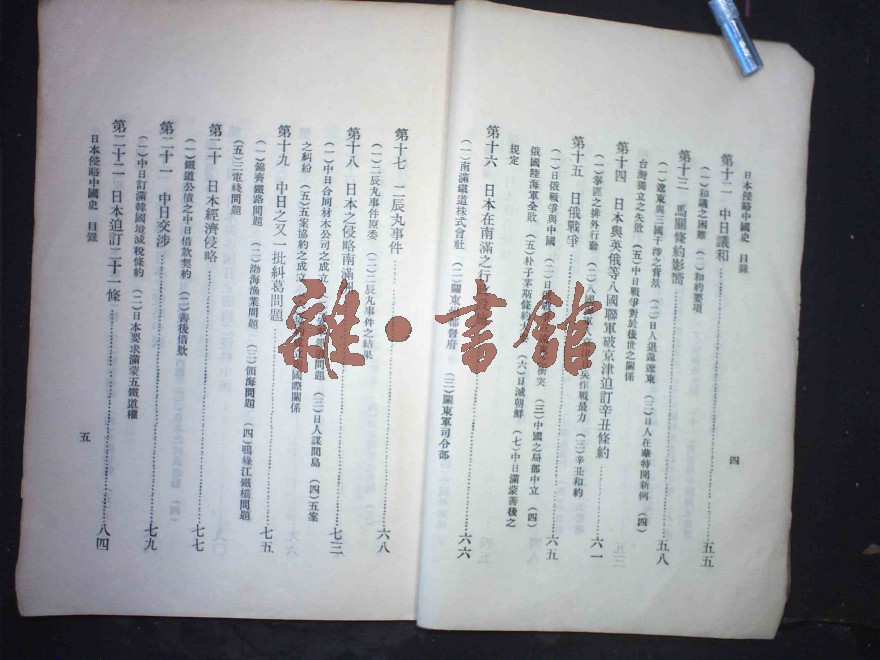 日本侵略中國史 目錄
四
第十二 中日議和 五五
(一)和議之困難 (二)和約要項
第十三 馬關條約影響 五八
(一)遼東與三國干涉之背景 (二)日人退還遼東 (三)日人在華特開新例 (四)
台灣獨立之失敗 (五)中日戰爭對於後世之關係
第十四 日本與英俄等八國聯軍破京津迫訂辛丑條約 六一
(一)拳匪之排外行動 (二)八國 作戰最力 (三)辛丑和約
第十五 日俄戰爭 六五
(一)日俄戰爭與中國 (二)日 衝突 (三)中國之局部中立 (四)
俄國陸海軍全敗 (五)朴子茅斯條約 (六)日滅朝鮮 (七)中日滿蒙善後之
規定
第十六 日本在南滿之行 六六
(一)南滿鐵道株式會社 (二)關東都督府 (三)關東軍司令部
第十七 二辰丸事件 六八
(一)二辰丸事件原委 (二)二辰丸事件之結果
第十八 日本之侵略南滿 七三
(一)中日合同材木公司之成立 問題 (三)日人謀間島 (四)五案
之糾紛 (五)五案協約之成立 國際關係
第十九 中日之又一批糾葛問題 七五
(一)錦齊鐵路問題 (二)渤海漁業問題 (三)領海問題 (四)鴨綠江鐵橋問題
(五)三電綫問題
第二十 日本經濟侵略 七七
(一)鐵道公債之中日借款契約 (二)善後借款
第二十一 中日交涉 七九
(一)中日訂滿韓國境減稅條約 (二)日本要求滿蒙五鐵道權
第二十二 日本迫訂二十一條 八四
日本侵略中國史 目錄
五
雜·書館